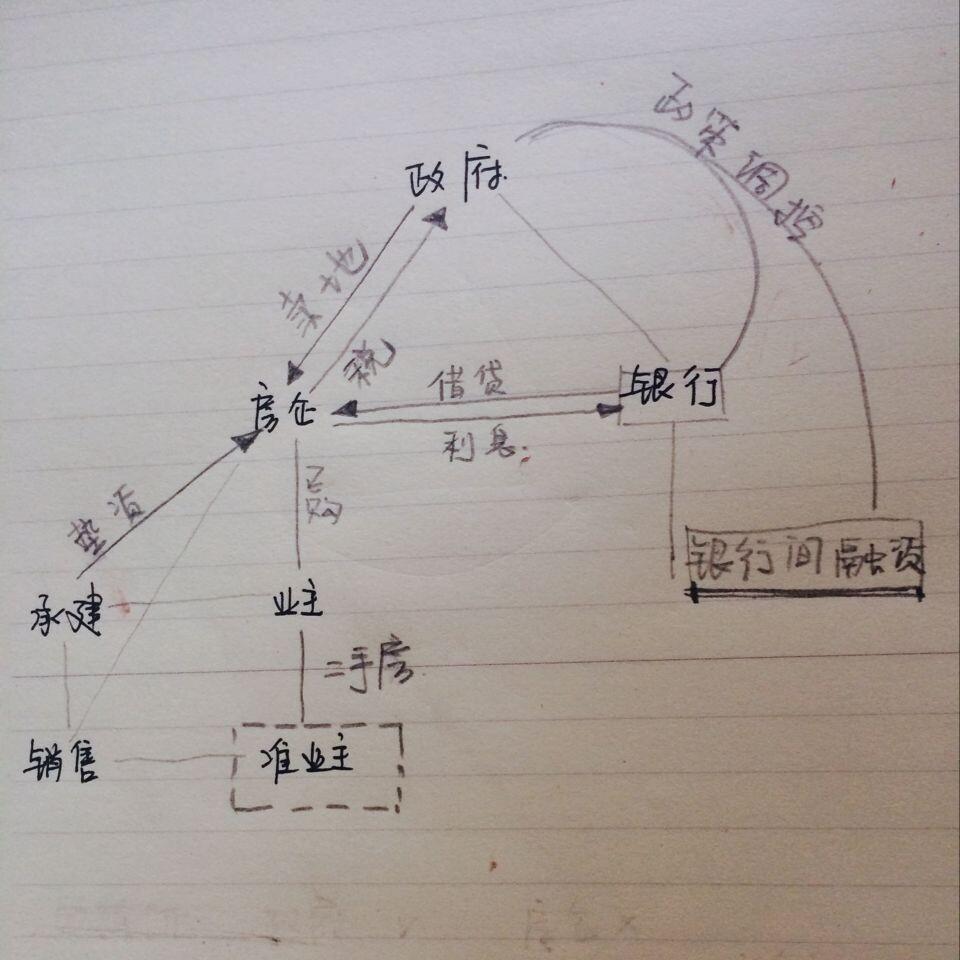 政策调控
政府
卖地
税
借贷
银行
房企
利息
已购
垫资
银行间融资
承建
业主
二手房
销售
准业主